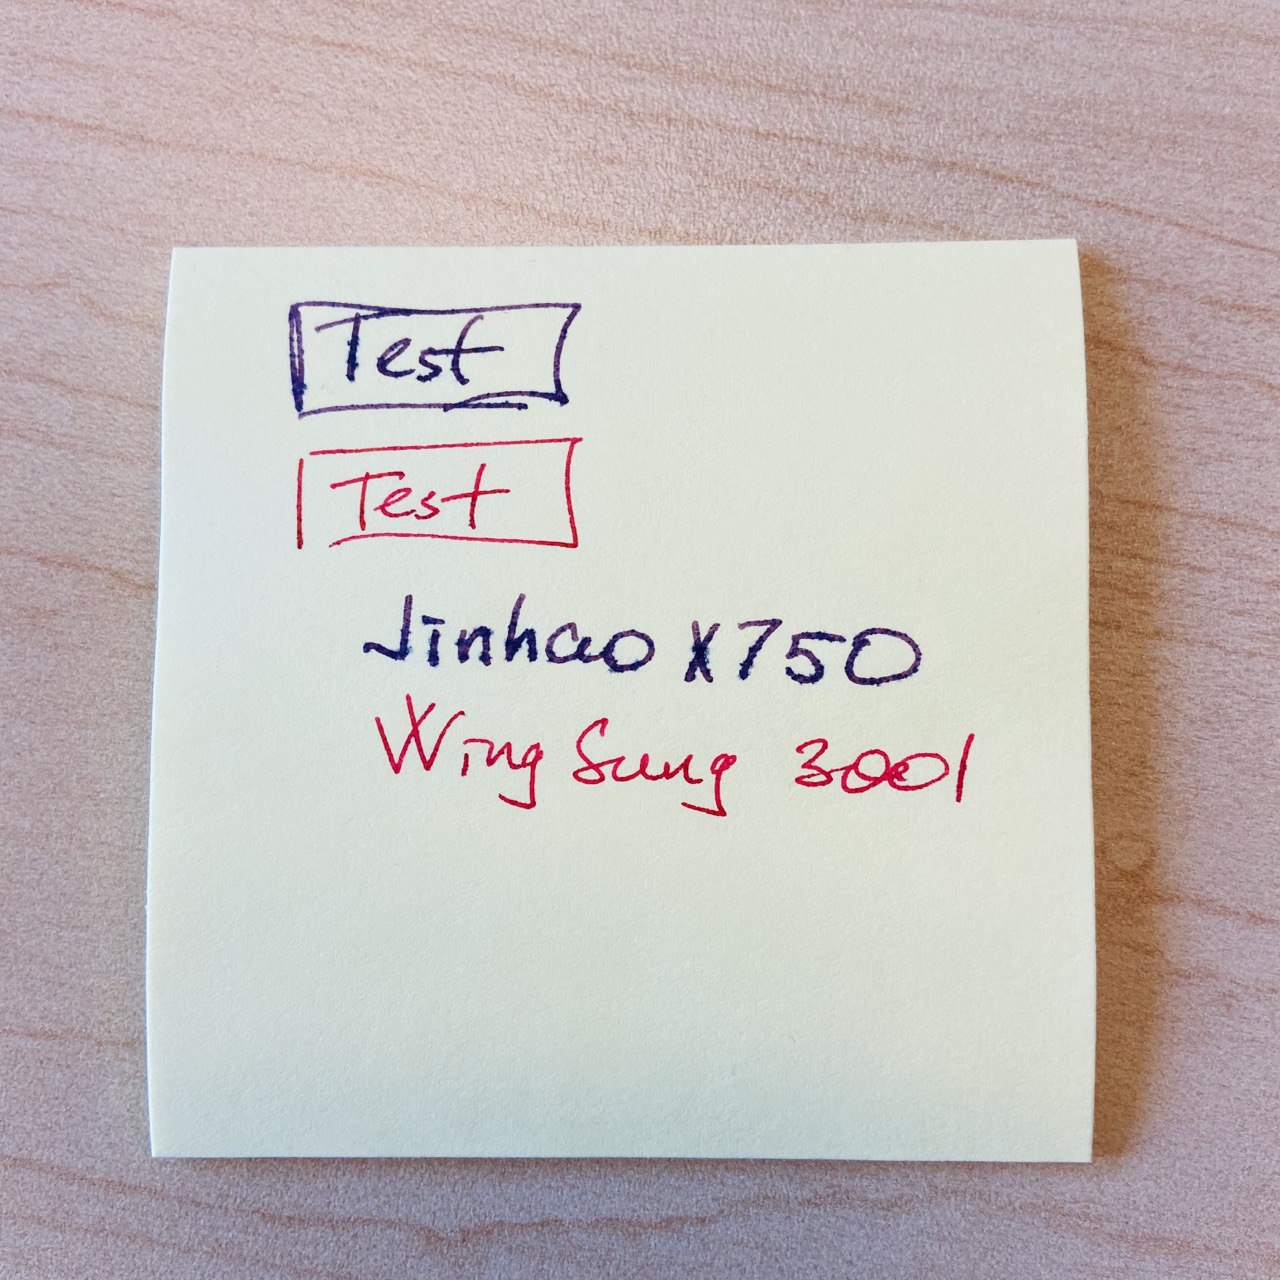 Test
Test
Jinhao X750
Wing Sung 3001